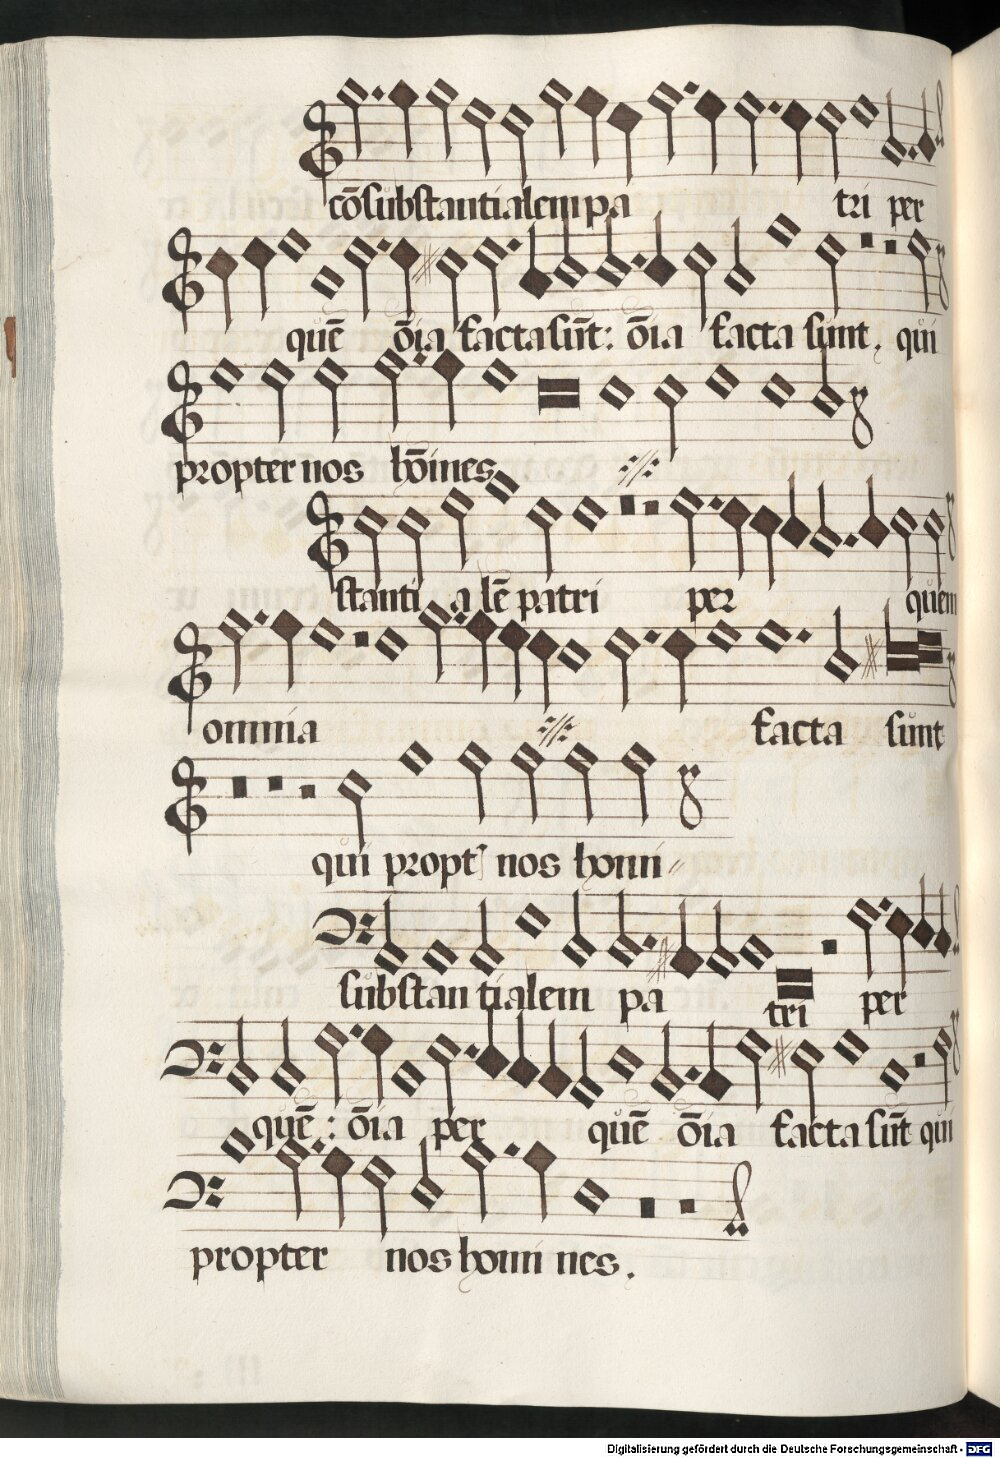 cōsubstantialem pa tri per
quē ōīa facta sūt: ōīa facta sunt, qui
propter nos hōīnes
stanti a lē patri per quem
omnia facta sunt
qui propt nos homi
substan tialem pa tri per
quē: ōīa per quē ōīa facta sūt qui
propter nos homi nes.
Digitalisierung gefördert durch die Deutsche Forschungsgemeinschaft - DFG